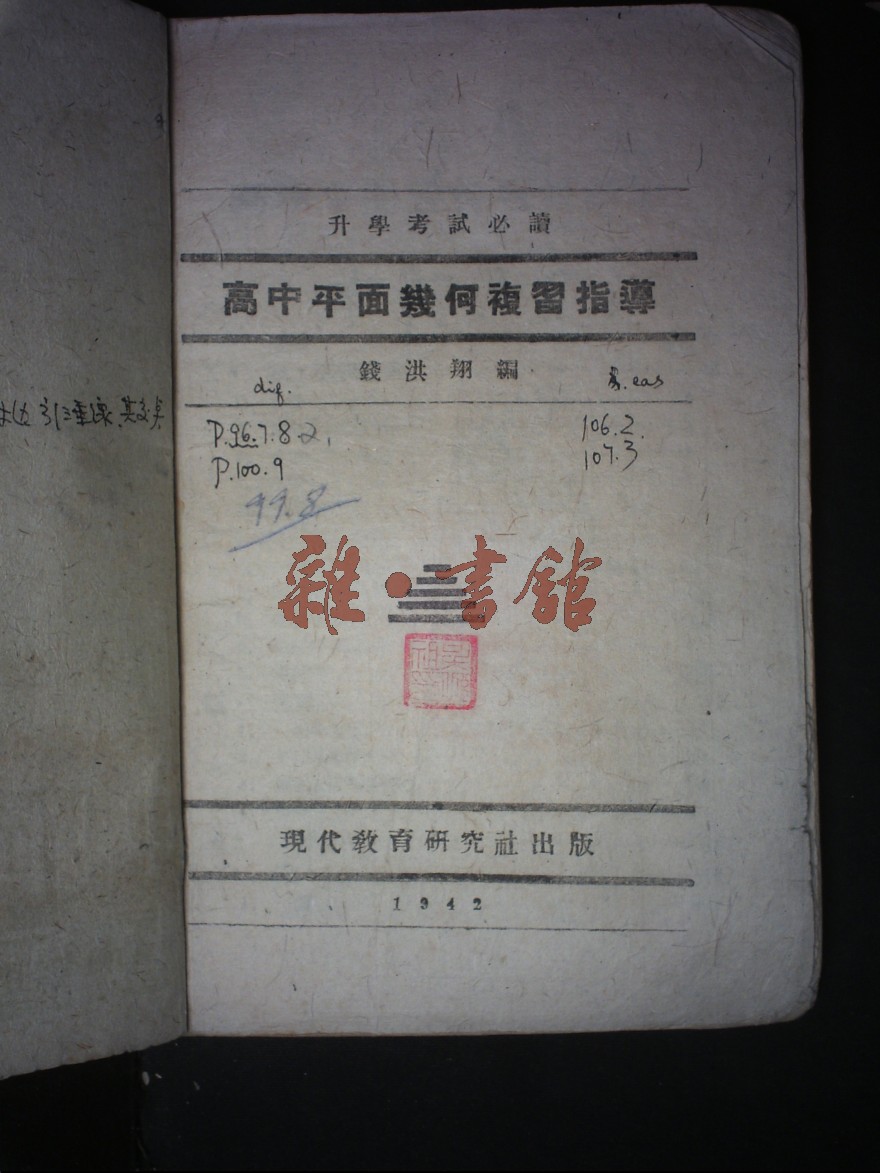 升學考試必讀
高中平面幾何複習指導
錢洪翔編
dif.
eas
P.96.7.8.2,
106.2.
P.100.9
107.3
99.8
雜·書館
現代教育研究社出版
1942